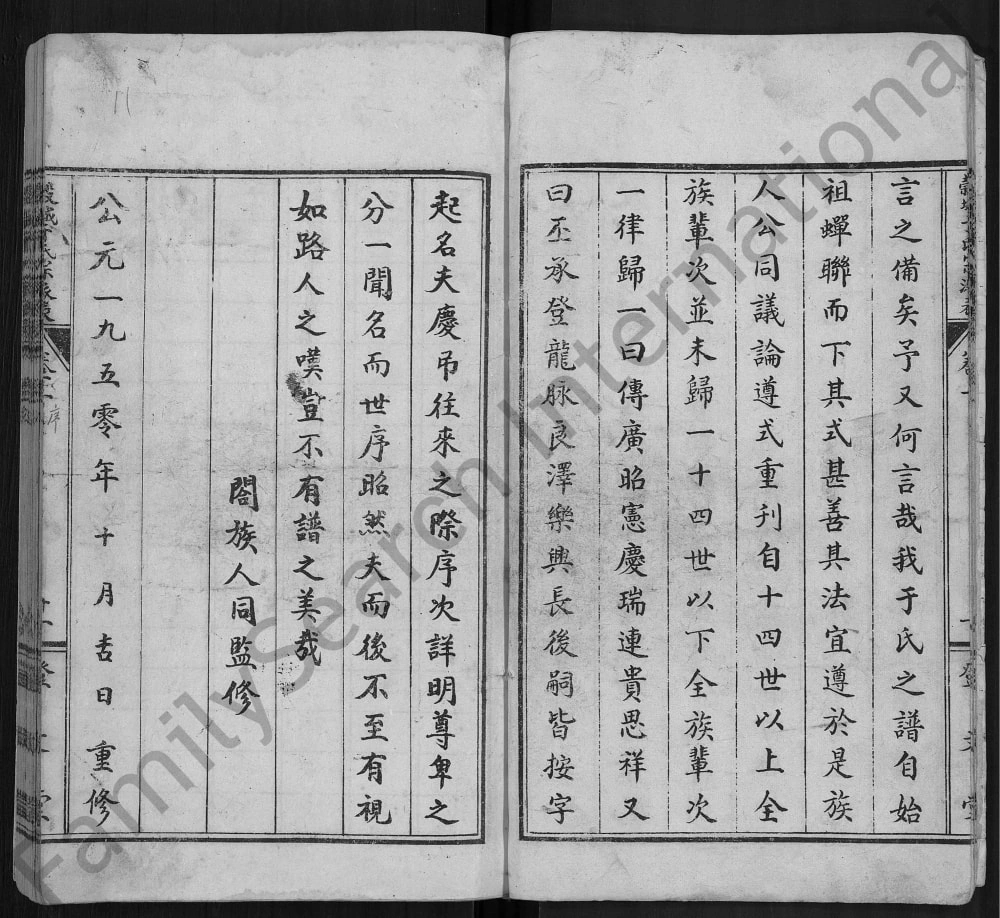 言之備矣予又何言哉我于氏之譜自始
祖蟬聯而下其式甚善其法宜遵於是族
人公同議論遵式重刊自十四世以上全
族輩次並未歸一十四世以下全族輩次
一律歸一曰傳廣昭憲慶瑞連貴思祥又
曰丕承登龍脉良澤樂興長後嗣皆按字
起名夫慶吊往來之際序次詳明尊卑之
分一聞名而世序昭然夫而後不至有視
如路人之嘆豈不有譜之美哉
閤族人同監修
公元一九五零年十月吉日重修
FamilySearch International